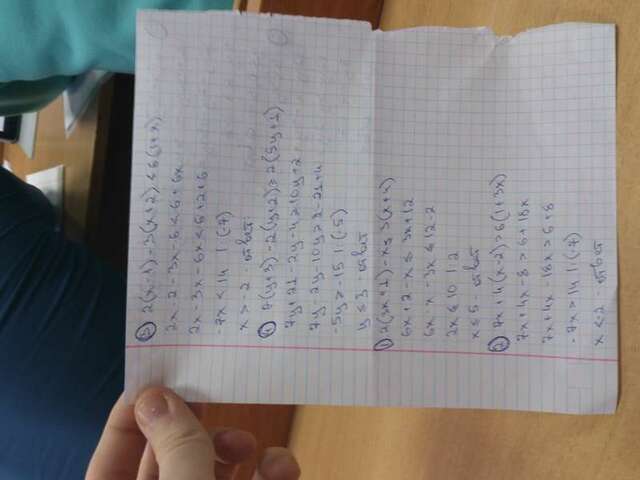 ③ 2(x-1)-3(x+2)<6(1+x)
2x-2-3x-6<6+6x
2x-3x-6x<6+2+6
-7x<14 | (-7)
x>-2 ответ
④ 7(y+3)-2(y+2)≥2(5y+1)
7y+21-2y-4≥10y+2
7y-2y-10y≥2-21+4
-5y≥-15 | (-5)
y≤3 - ответ
① 2(3x+1)-x≤3(x+4)
6x+2-x≤3x+12
6x-x-3x≤12-2
2x≤10 | 2
x≤5 - ответ
② 7x+4(x-2)>6(1+3x)
7x+4x-8>6+18x
7x+4x-18x>6+8
-7x>14 | (-7)
x<2 - ответ